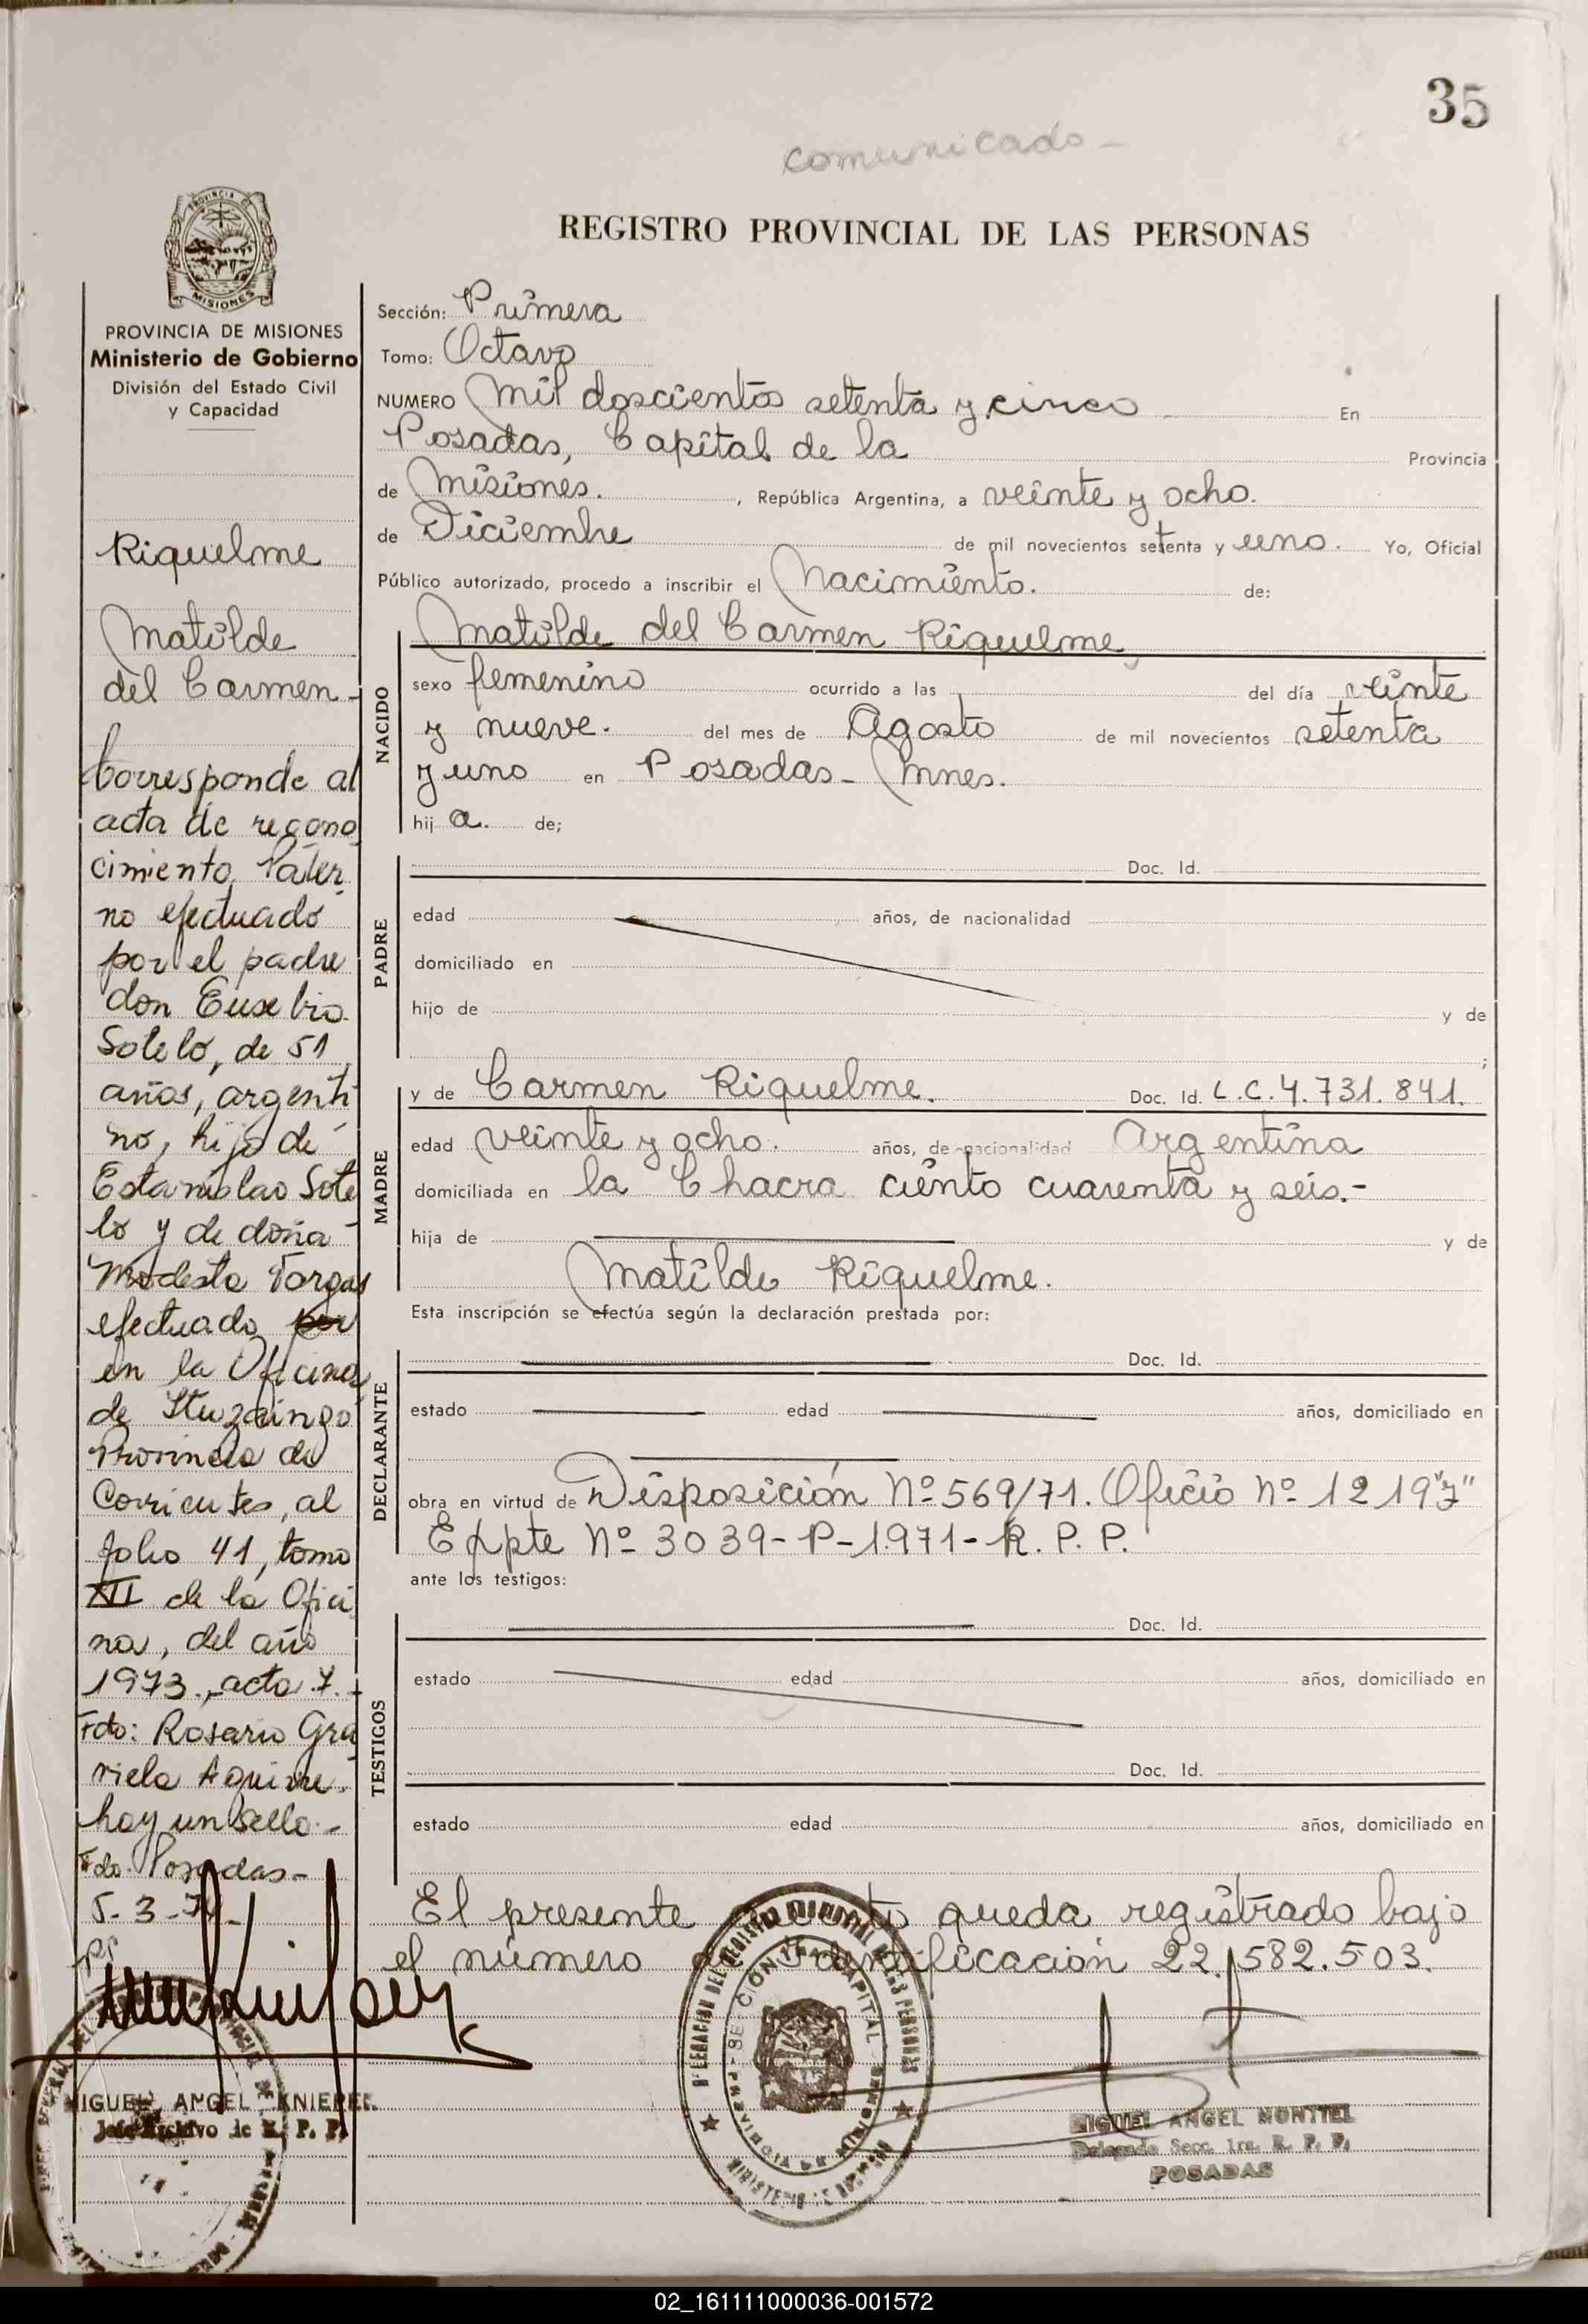 35
comunicado -
PROVINCIA DE
MISIONES
PROVINCIA DE MISIONES
Ministerio de Gobierno
División del Estado Civil
y Capacidad
Riquelme
Matilde
del Carmen -
Corresponde al
acta de recono
cimiento Pater
no efectuado
por el padre
don Eusebio
Sotelo, de 51
años, argenti
no, hijo de
Estanislao Sote
lo y de doña
Modesta Vargas
efectuado por
en la Oficina
de Ituzaingo
Provincia de
Corrientes, al
folio 41, tomo
XII de la Ofici
na, del año
1973., acta 7.-
Fdo: Rosario Gra
viela Aguirre.
hay un sello.-
Fdo. Posadas-
5-3-74-
MIGUEL ANGEL KNIEREM
Jefe Archivo de R. P. P.
REGISTRO PROVINCIAL DE LAS PERSONAS
Sección: Primera
Tomo: Octavo
NUMERO Mil doscientos setenta y cinco En
Posadas, Capital de la Provincia
de Misiones. , República Argentina, a veinte y ocho.
de Diciembre de mil novecientos setenta y uno. Yo, Oficial
Público autorizado, procedo a inscribir el Nacimiento. de:
NACIDO
Matilde del Carmen Riquelme
sexo femenino ocurrido a las del día veinte
y nueve. del mes de Agosto de mil novecientos setenta
y uno en Posadas - Mnes.
hij a. de;
PADRE
Doc. Id.
edad años, de nacionalidad
domiciliado en
hijo de y de
;
MADRE
y de Carmen Riquelme. Doc. Id. L.C. 4.731.841.
edad veinte y ocho. años, de nacionalidad Argentina
domiciliada en la Chacra ciento cuarenta y seis.-
hija de y de
Matilde Riquelme.
Esta inscripción se efectúa según la declaración prestada por:
DECLARANTE
Doc. Id.
estado edad años, domiciliado en
obra en virtud de Disposición Nº 569/71. Oficio Nº 1219"J"
Expte Nº 3039-P-1971-R.P.P.
ante los testigos:
TESTIGOS
Doc. Id.
estado edad años, domiciliado en
Doc. Id.
estado edad años, domiciliado en
El presente queda registrado bajo
el número de identificación 22.582.503.
DELEGACION DEL REGISTRO PROVINCIAL DE LAS PERSONAS
SECCION 1ra. CAPITAL
MIGUEL ANGEL MONTIEL
Delegado Secc. 1ra. R. P. P.
POSADAS
02_161111000036-001572